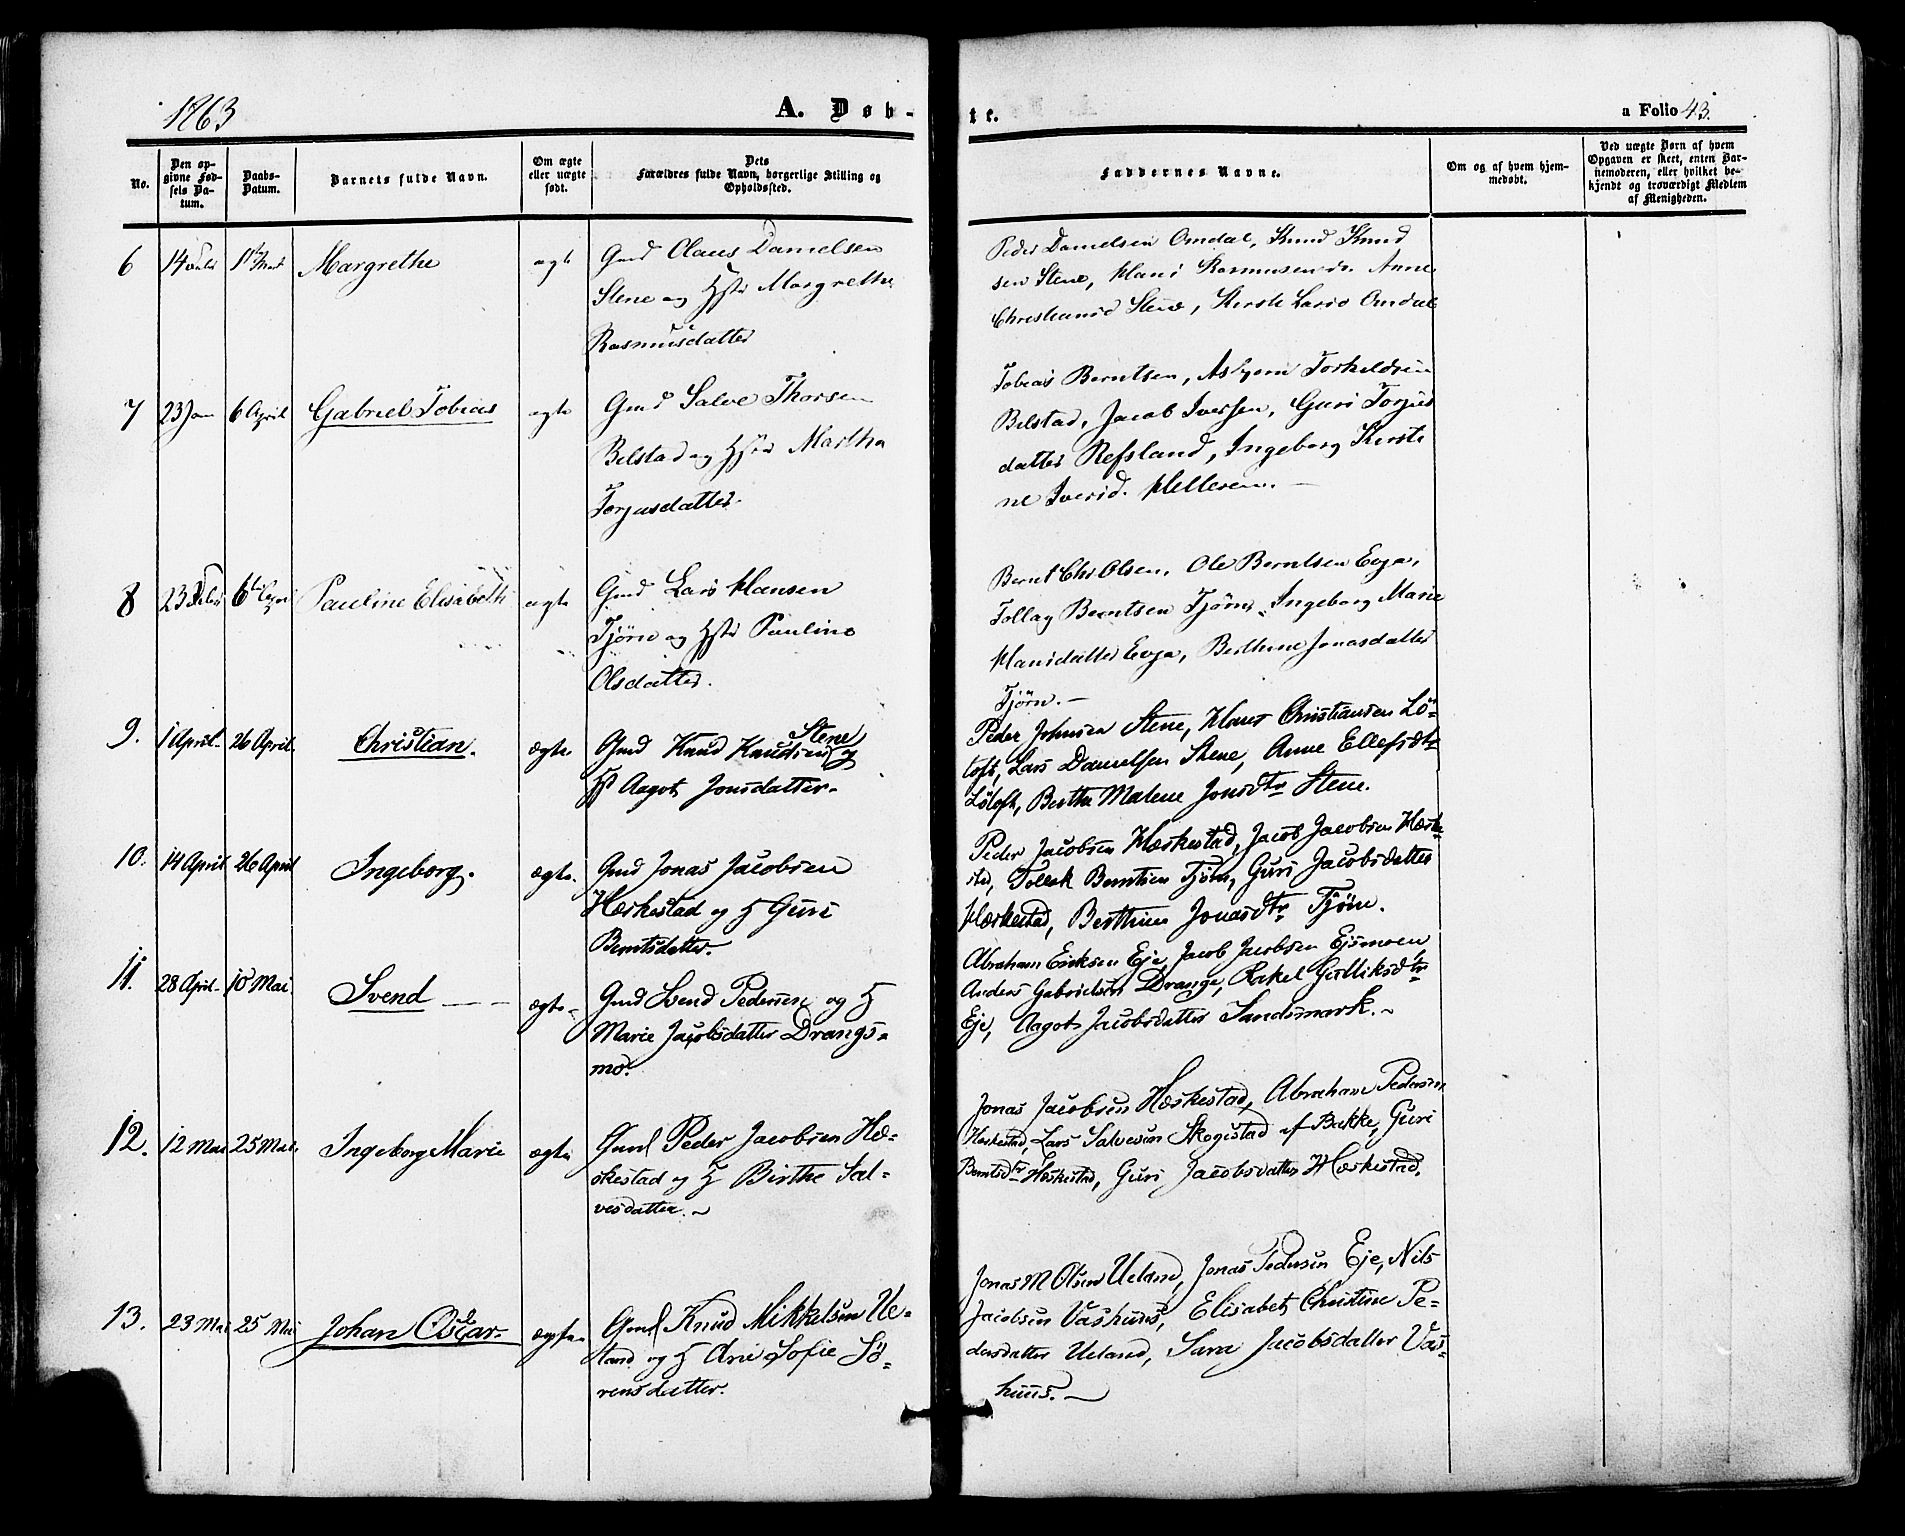 1863
A. Døb-
te.
a Folio 43.
No.
Den op-
givne Fød-
sels Da-
tum.
Daabs-
Datum.
Barnets fulde Navn.
Om ægte
eller uægte
født.
Dets
Forældres fulde Navn, borgerlige Stilling og
Opholdssted.
Faddernes Navne.
Om og af hvem hjem-
medøbt.
Ved uægte Børn af hvem
Opgaven er skeet, enten Bar-
nemoderen, eller hvilket be-
kjendt og troværdigt Medlem
af Menigheden.
6
14 Febr
Margrethe
ægte
Gmd Claus Danielsen
Stene og Hstr Margrethe
Rasmusdatter
Peder Danielsen Omdal, Knud Knud
sen Stene, Hans Rasmusen do. Anne
Christiansd Stene, Kirsti Larsd Omdal
7
23 Jan
6 April
Gabriel Tobias
ægte
Gmd Salve Thorsen
Belstad og Hstr Martha
Torjusdatter.
Tobias Berntsen, Asbjørn Torkeldsen
Belstad, Jacob Iversen, Guri Torjus
datter Refsland, Ingeborg Kirsti
ne Iversd. Helleren. —
8
23 Febr
6te April
Pauline Elisabeth
ægte
Gmd Lars Hansen
Tjørn og Hstr Pauline
Olsdatter.
Bernt Chr Olsen, Ole Berntsen Evja,
Tollag Berntsen Tjørn, Ingeborg Marie
Hansdatter Evja, Berthine Jonasdatter
Tjørn. —
9.
1 April.
26 April.
Christian.
ægte
Gmd Knud Knudsen Stene og
H Aagot Jonsdatter.
Peder Johnsen Stene, Hans Christiansen Lö-
toft, Lars Danielsen Stene, Anne Ellefsdtr
Lötoft, Berthe Malene Jonsdtr Stene.
10.
14 April
26 April
Ingeborg.
ægte.
Gmd Jonas Jacobsen
Hæskestad og H Guri
Berntsdatter.
Peder Jacobsen Hæskestad, Jacob Jacobsen Hæske
stad, Tollak Berntsen Tjörn, Guri Jacobsdatter
Hæskestad, Berthine Jonasdtr Tjörn.
11.
28 April.
10 Mai.
Svend — —
ægte.
Gmd Svend Pedersen og H
Marie Jacobsdatter Drangs-
mo.
Abraham Eriksen Eje, Jacob Jacobsen Ejsmoen
Anders Gabrielsen Drange, Rakel Gulliksdtr
Eje, Aagot Jacobsdatter Sandsmark. —
12.
12 Mai
25 Mai.
Ingeborg Marie
ægte
Gmd Peder Jacobsen Hæ-
skestad og H Birthe Sal-
vesdatter. —
Jonas Jacobsen Hæskestad, Abraham Pedersen
Hæskestad, Lars Salvesen Skogestad af Bakke, Guri
Berntsdtr Hæskestad, Guri Jacobsdatter Hæskestad.
13.
23 Mai
25 Mai
Johan Oscar.
ægte
Gmd Knud Mikkelsen Ue-
land og H Ane Sofie Sö-
rensdatter.
Jonas M Olsen Ueland, Jonas Pedersen Eje, Nils
Jacobsen Vashuus, Elisabet Christine Pe-
dersdatter Ueland, Sara Jacobsdatter Vas-
huus. —